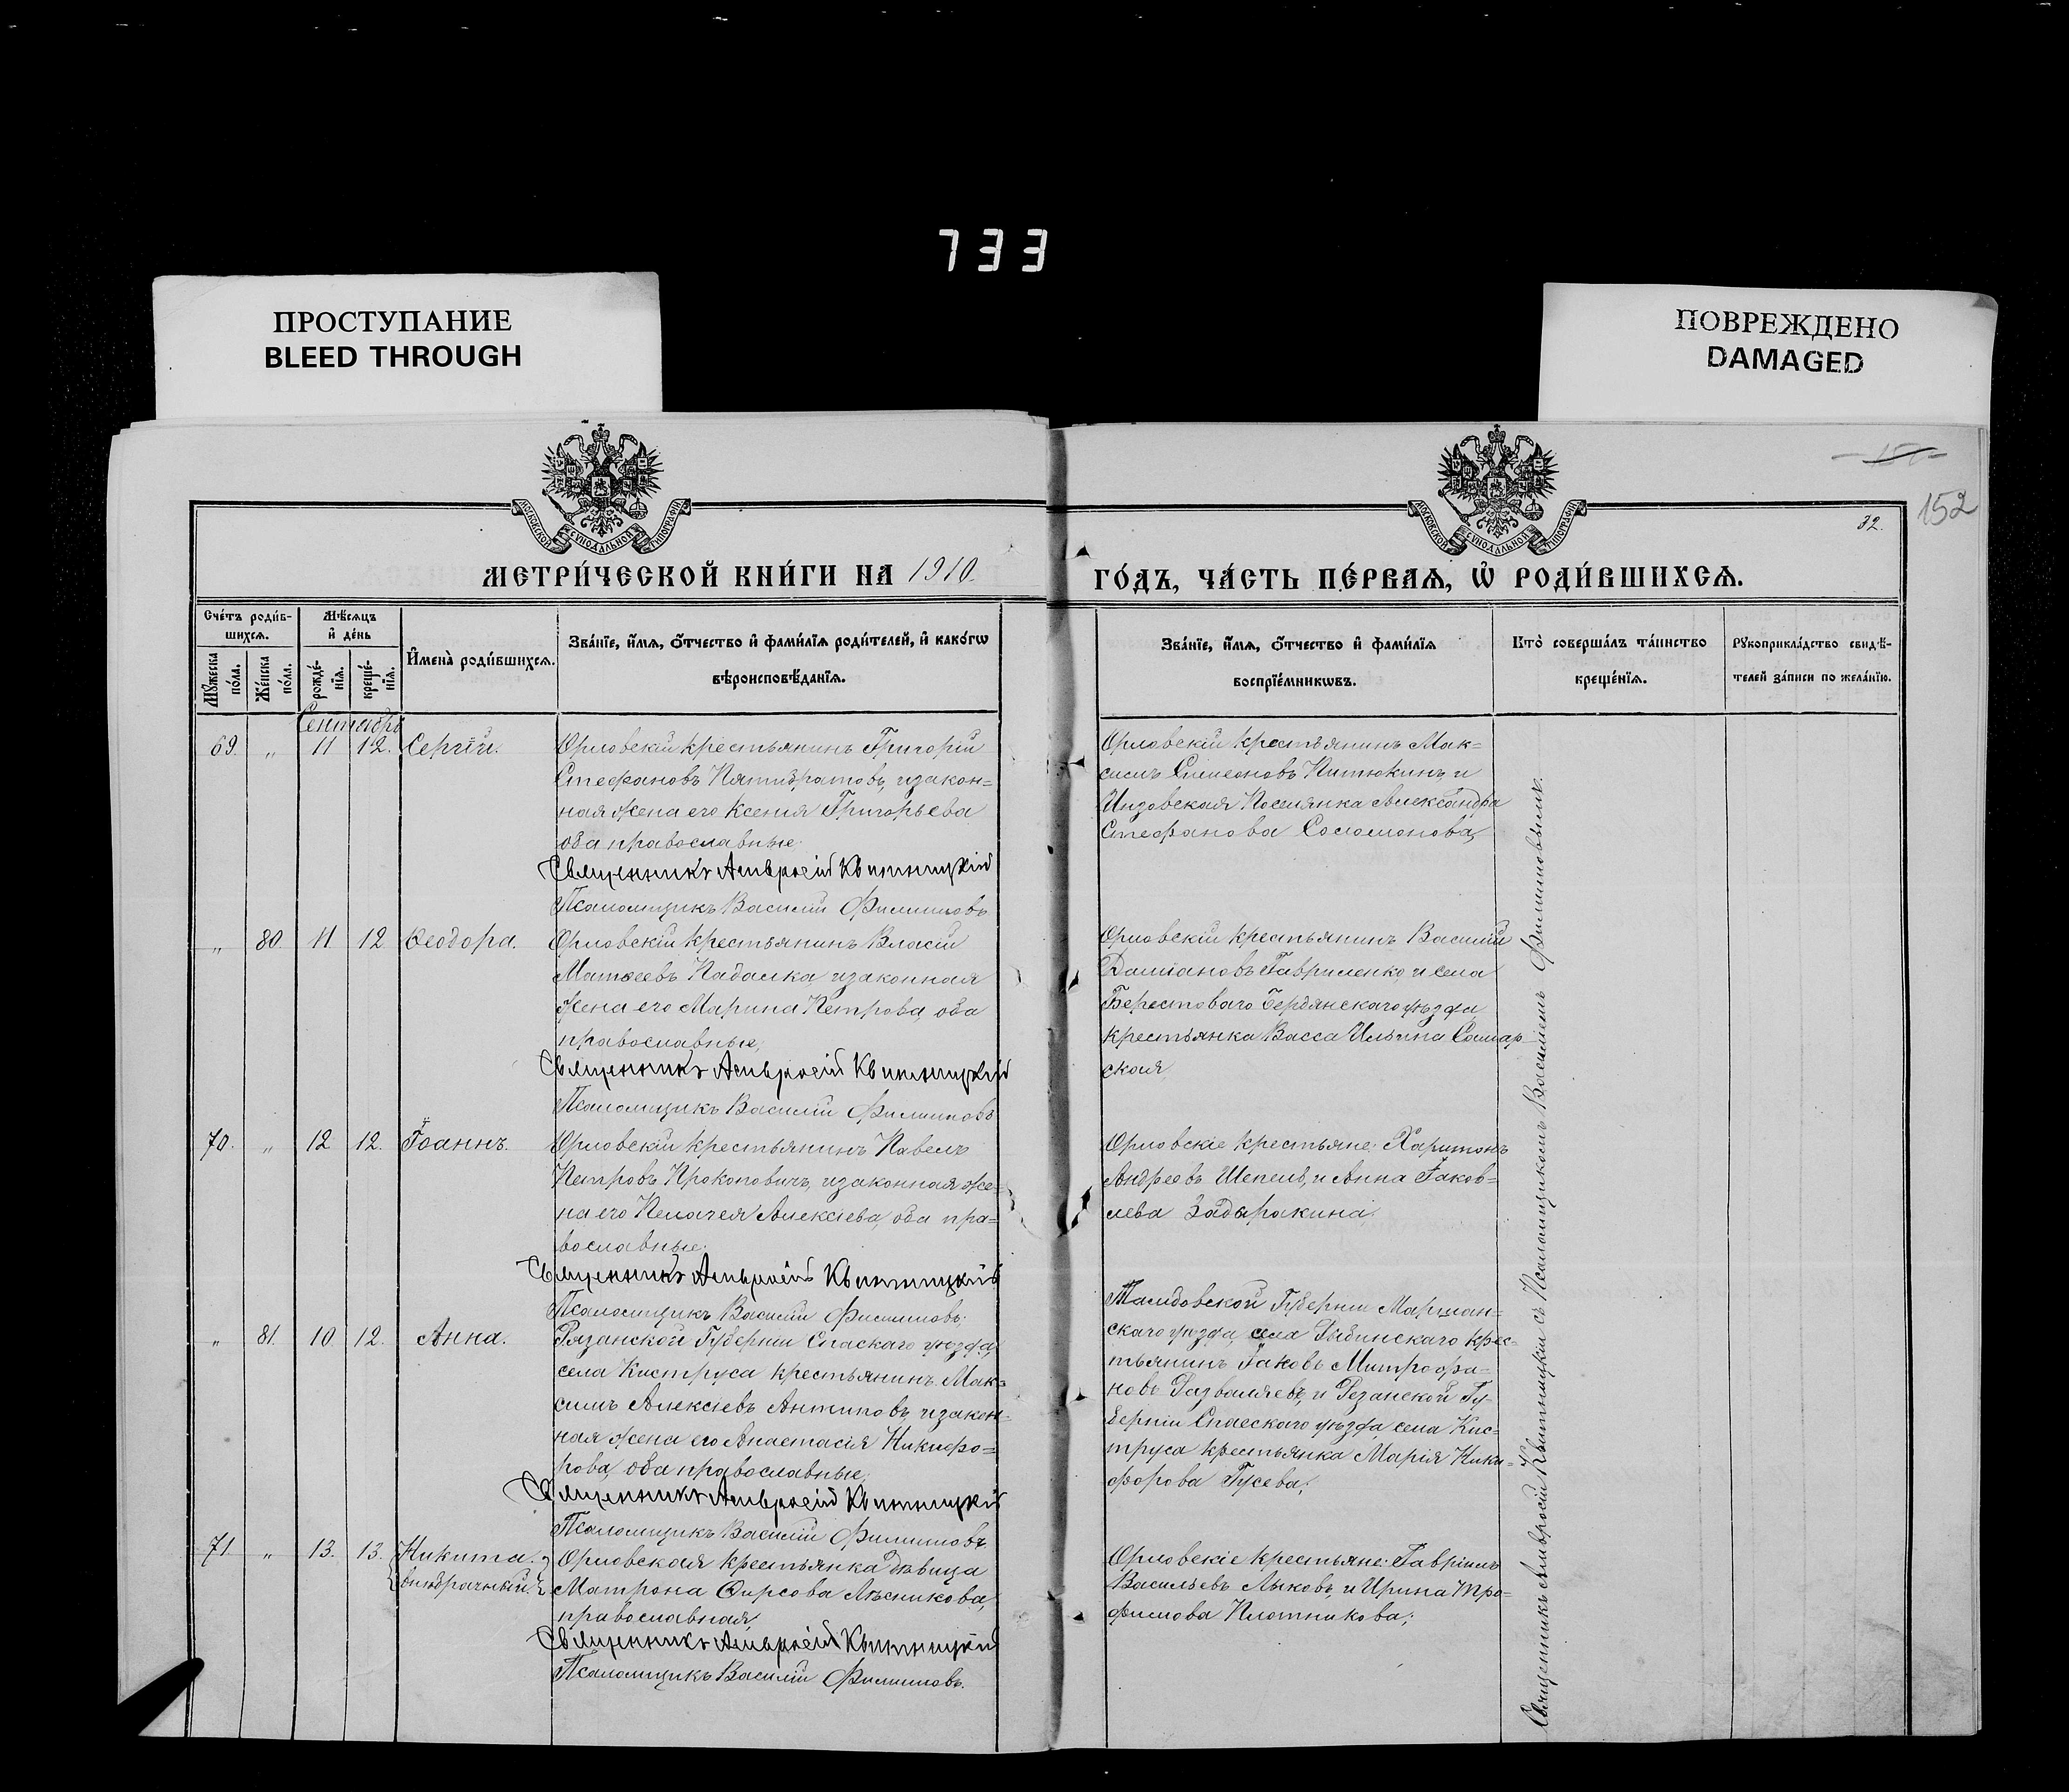 733
ПРОСТУПАНИЕ
BLEED THROUGH
ПОВРЕЖДЕНО
DAMAGED
152
32.
МОСКОВСКОЙ СѴНОДАЛЬНОЙ ТИПОГРАФІИ
МОСКОВСКОЙ СѴНОДАЛЬНОЙ ТИПОГРАФІИ
МЕТРИ́ЧЕСКОЙ КНИ́ГИ НА 1910.
ГО́ДЪ, ЧА́СТЬ ПЕ́РВАѦ, Ѡ҆ РОДИ́ВШИХСѦ.
Сче́тъ роди́в-
шихсѧ.
Мѹ́жеска по́ла.
Же́нска по́ла.
Мѣ́сѧцъ
и҆ де́нь
рожде́-
нїѧ.
креще́-
нїѧ.
И҆мена̀ роди́вшихсѧ.
Зва́нїе, и҆́мѧ, ѻ҆́тчество и҆ фами́лїѧ роди́телей, и҆ како́гѡ
вѣроисповѣ́данїѧ.
Зва́нїе, и҆́мѧ, ѻ҆́тчество и҆ фами́лїѧ
воспрїе́мникѡвъ.
Кто̀ соверша́лъ та́инство
креще́нїѧ.
Рѹкоприкла́дство свидѣ́-
телей за́писи по жела́нїю.
Сентябрь
69. „ 11 12. Сергій.
Орловскій крестьянинъ Григорій
Стефановъ Пятибратовъ, и закон-
ная жена его Ксенія Григорьева
оба православные.
Священникъ Амвросій Квитницкій
Псаломщикъ Василій Филиповъ
Орловскій крестьянинъ Мак-
симъ Симеоновъ Питюкинъ и
Инзовская Поселянка Александра
Стефанова Соломонова,
„ 80. 11 12 Ѳеодора.
Орловскій крестьянинъ Власій
Матѳеевъ Падалка, и законная
жена его Марина Петрова, оба
православные,
Священникъ Амвросій Квитницкій
Псаломщикъ Василій Филиповъ
Орловскій крестьянинъ Василій
Даміановъ Гавриленко, и села
Берестоваго Бердянскаго уѣзда
крестьянка Васса Ильина Самар
ская
70. „ 12 12. Іоаннъ.
Орловскій крестьянинъ Павелъ
Петровъ Прокоповичъ, и законная же-
на его Пелагея Алексіева, оба пра-
вославные.
Священникъ Амвросій Квитницкій
Псаломщикъ Василій Филиповъ.
Орловскіе крестьяне: Харитонъ
Андреевъ Шепель, и Анна Іаков-
лева Задыракина.
„ 81. 10 12. Анна.
Рязанской Губерніи Спаскаго уѣзда,
села Киструса крестьянинъ Мак-
симъ Алексіевъ Антиповъ, и закон-
ная жена его Анастасія Никифо-
рова, оба православные,
Священникъ Амвросій Квитницкій
Псаломщикъ Василій Филиповъ
Тамбовской Губерніи Маршан-
скаго уѣзда, села Рыбинскаго крес-
тьянинъ Іаковъ Митрофа-
новъ Разваляевъ, и Резанской Гу-
берніи Спасскаго уѣзда, села Кис-
труса крестьянка Марія Ники-
форова Гусева;
71. „ 13. 13. Никита.
{внѣбрачный.}
Орловская крестьянка дѣвица
Матрона Ѳирсова Лѣсникова,
православная,
Священникъ Амвросій Квитницкій
Псаломщикъ Василій Филиповъ.
Орловскіе крестьяне: Гавріилъ
Васильевъ Лыковъ, и Ирина Тро-
фимова Плотникова;
Священникъ Амвросій Квитницкій съ Псаломщикомъ Василіемъ Филиповымъ.